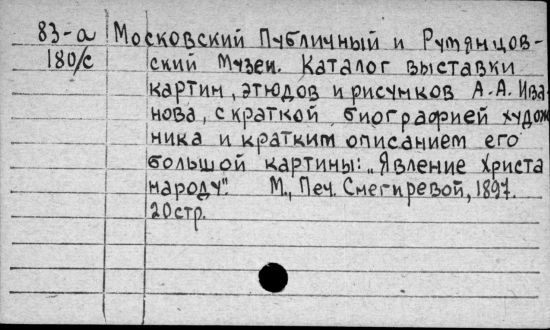 83-а Московский Публичный и Румянцов-
180/с ский Музеи. Каталог выставки
картин, этюдов и рисунков А.А. Ива-
нова, с краткой биографией худож
ника и кратким описанием его
большой картины: „Явление Христа
народу". М., Печ. Снегиревой, 1897.
20стр.